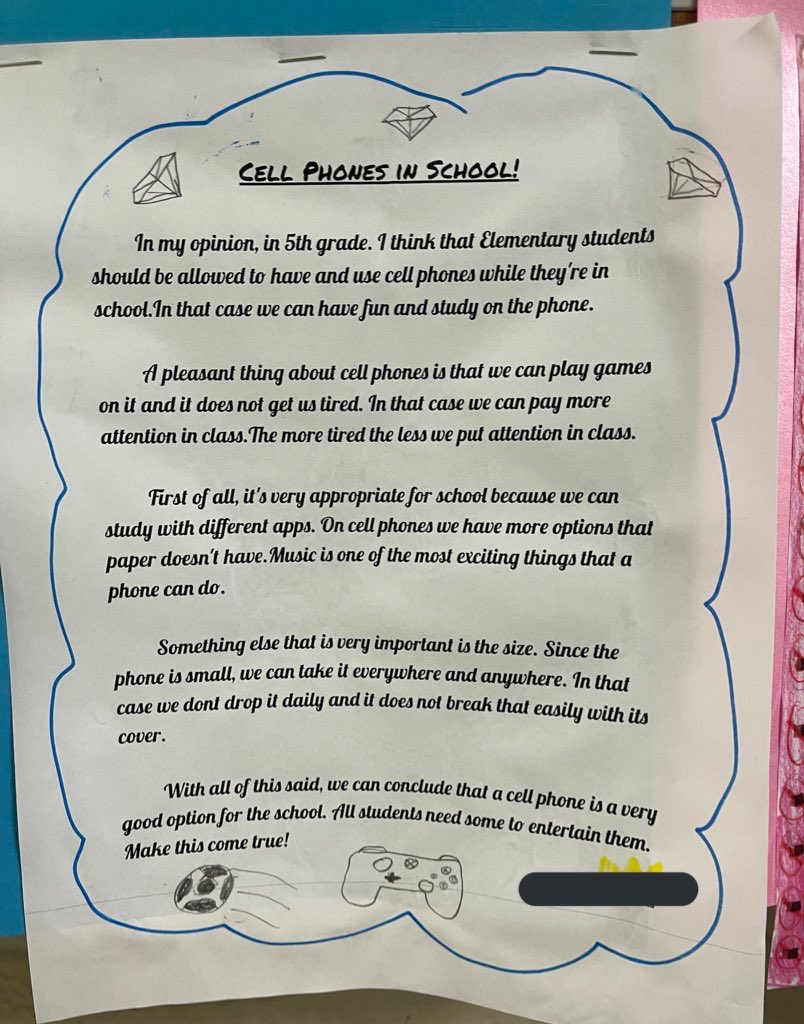 CELL PHONES IN SCHOOL!
In my opinion, in 5th grade. I think that Elementary students
should be allowed to have and use cell phones while they're in
school.In that case we can have fun and study on the phone.
A pleasant thing about cell phones is that we can play games
on it and it does not get us tired. In that case we can pay more
attention in class.The more tired the less we put attention in class.
First of all, it's very appropriate for school because we can
study with different apps. On cell phones we have more options that
paper doesn't have.Music is one of the most exciting things that a
phone can do.
Something else that is very important is the size. Since the
phone is small, we can take it everywhere and anywhere. In that
case we dont drop it daily and it does not break that easily with its
cover.
With all of this said, we can conclude that a cell phone is a very
good option for the school. All students need some to entertain them.
Make this come true!